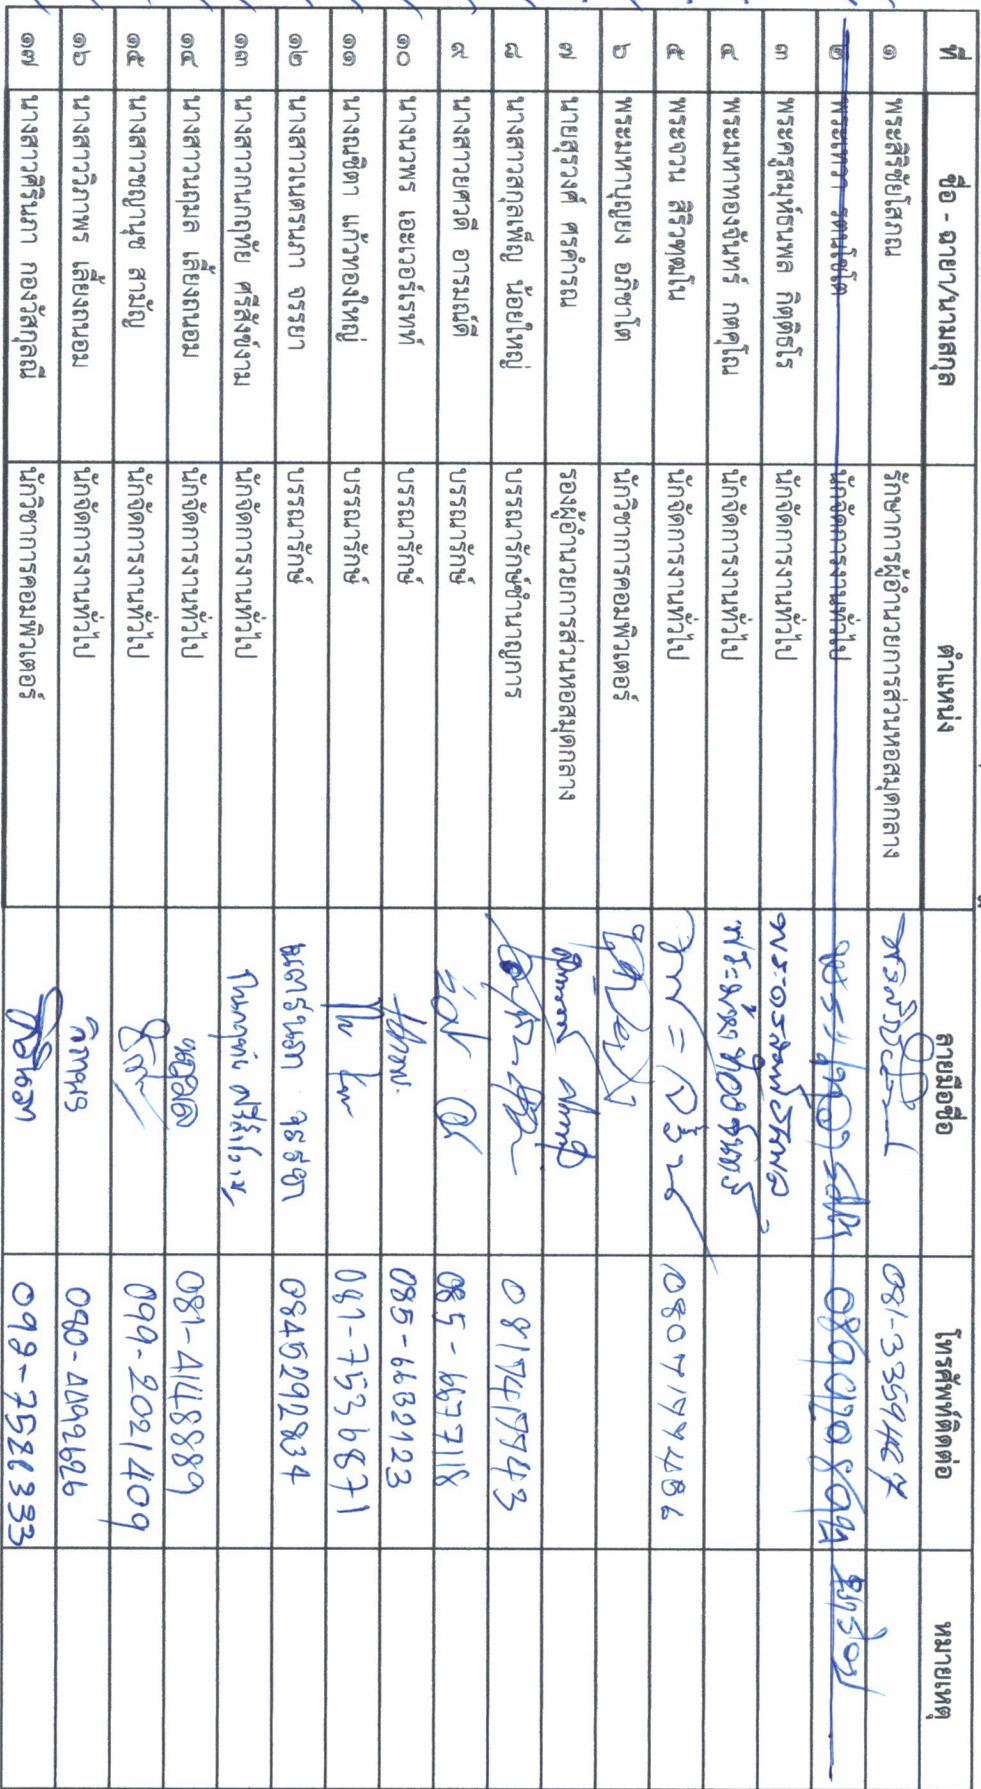 ที่ ชื่อ - ฉายา/นามสกุล ตำแหน่ง ลายมือชื่อ โทรศัพท์ติดต่อ หมายเหตุ
๑ พระสิริชัยโสภณ รักษาการผู้อำนวยการส่วนหอสมุดกลาง
๒ พระเทวา รตนโชโต นักจัดการงานทั่วไป
๓ พระครูสมุห์ธนพล กิตฺติธโร นักจัดการงานทั่วไป
๔ พระมหาทองจันทร์ กตคุโณ นักจัดการงานทั่วไป
๕ พระจวน สิริวฑฺฒโน นักจัดการงานทั่วไป
๖ พระมหาบุญยง อภิชาโต นักวิชาการคอมพิวเตอร์
๗ นายสุรวงศ์ ศรคำรณ รองผู้อำนวยการส่วนหอสมุดกลาง
๘ นางสาวสกุลเพ็ญ น้อยใหญ่ บรรณารักษ์ชำนาญการ 0817417743
๙ นางสาวยศวดี อารมณ์ดี บรรณารักษ์ 085-6677118
๑๐ นางนวพร เอยเวอร์เรทท์ บรรณารักษ์ 085-6632123
๑๑ นางณชิตา แก้วทองใหญ่ บรรณารักษ์ 081-7536871
๑๒ นางสาวเนตรนภา จรรยา บรรณารักษ์ เนตรนภา จรรยา 0845292834
๑๓ นางสาวกนกฤทัย ศรีสังข์งาม นักจัดการงานทั่วไป
๑๔ นางสาวนฤมล เลี้ยงถนอม นักจัดการงานทั่วไป นฤมล 081-4148889
๑๕ นางสาวชญานุช สามัญ นักจัดการงานทั่วไป 099-2021409
๑๖ นางสาววิภาพร เลี้ยงถนอม นักจัดการงานทั่วไป วิภาพร 090-4492626
๑๗ นางสาวศิรินภา กองวัสกุลณี นักวิชาการคอมพิวเตอร์ ศิรินภา